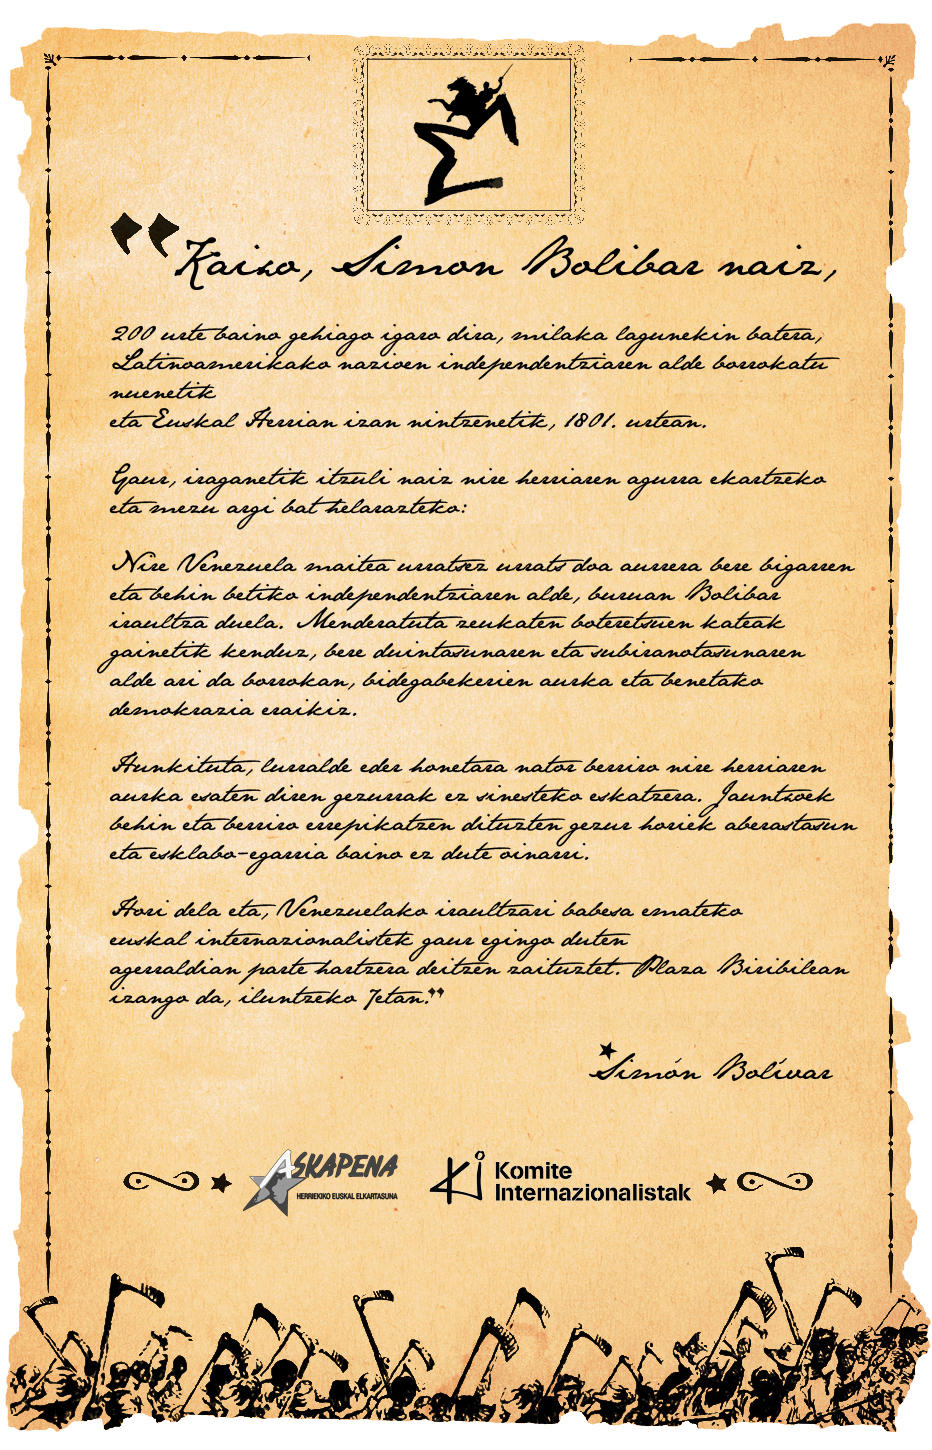 "Kaixo, Simon Bolibar naiz,
200 urte baino gehiago igaro dira, milaka lagunekin batera,
Latinoamerikako nazioen independentziaren alde borrokatu
nuenetik
eta Euskal Herrian izan nintzenetik, 1801. urtean.
Gaur, iraganetik itzuli naiz nire herriaren agurra ekartzeko
eta mezu argi bat helarazteko:
Nire Venezuela maitea urratsez urrats doa aurrera bere bigarren
eta behin betiko independentziaren alde, buruan Bolibar
iraultza duela. Menderatuta zeukaten boteretsuen kateak
gainetik kenduz, bere duintasunaren eta subiranotasunaren
alde ari da borrokan, bidegabekerien aurka eta benetako
demokrazia eraikiz.
Hunkituta, lurralde eder honetara nator berriro nire herriaren
aurka esaten diren gezurrak ez sinesteko eskatzera. Jauntxoek
behin eta berriro errepikatzen dituzten gezur horiek aberastasun
eta esklabo-egarria baino ez dute oinarri.
Hori dela eta, Venezuelako iraultzari babesa emateko
euskal internazionalistek gaur egingo duten
agerraldian parte hartzera deitzen zaituztet. Plaza Biribilean
izango da, iluntzeko 7etan."
Simón Bolívar
ASKAPENA
HERRIEKIKO EUSKAL ELKARTASUNA
Ki Komite
Internazionalistak